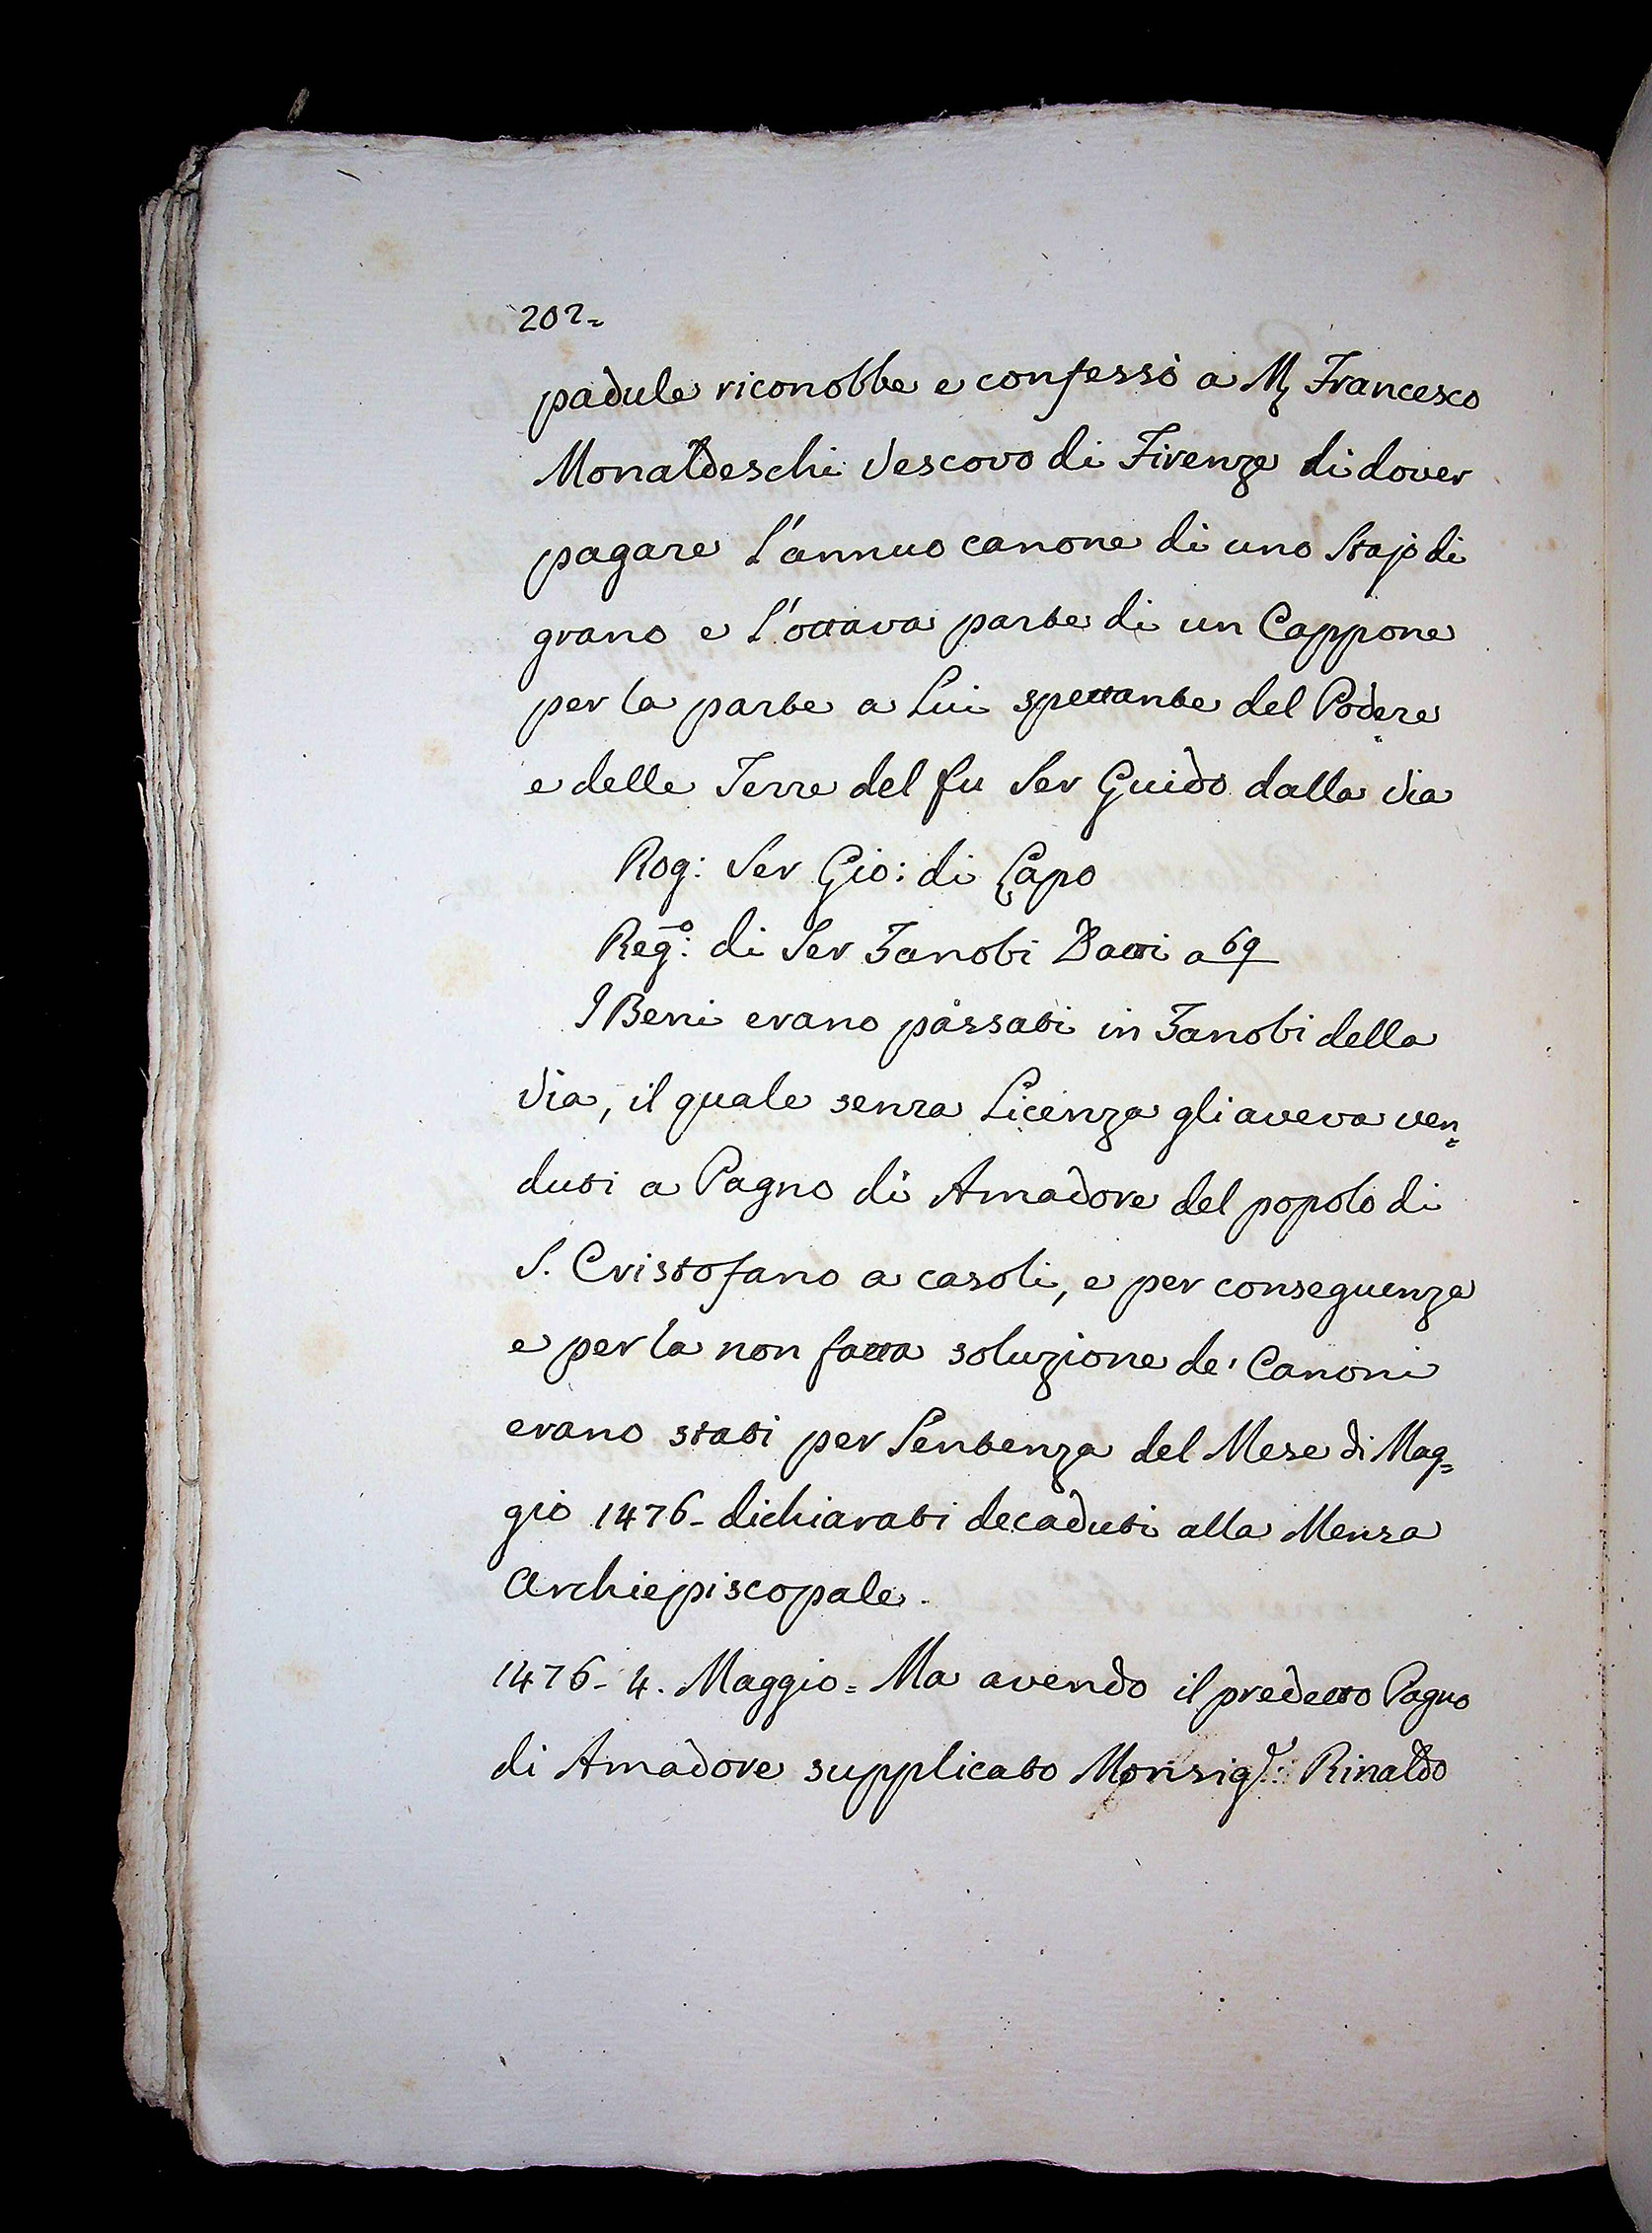 202=
padule riconobbe e confessò a M. Francesco
Monaldeschi Vescovo di Firenze di dover
pagare l'annuo canone di uno Stajo di
grano e l'ottava parte di un Cappone
per la parte a Lui spettante del Podere
e delle Terre del fu Ser Guido dalla Via
Rog: Ser Gio: di Capo
Reg:º di Ser Zanobi Batti a 69
I Beni erano passati in Zanobi della
Via, il quale senza Licenza gli aveva ven=
duti a Pagno di Amadore del popolo di
S. Cristofano a casoli, e per conseguenza
e per la non fatta soluzione de' Canoni
erano stati per Sentenza del Mese di Mag=
gio 1476- dichiarati decaduti alla Mensa
Archiepiscopale.
1476- 4. Maggio = Ma avendo il predetto Pagno
di Amadore supplicato Monsigr: Rinaldo